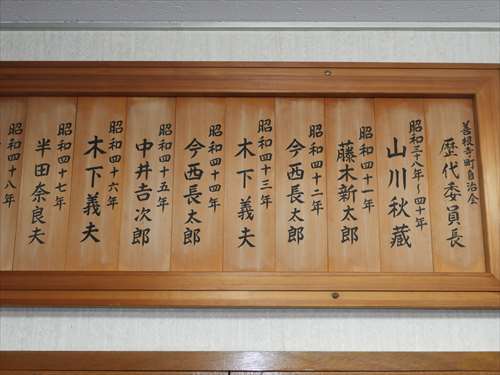 善根寺町自治会
歴代委員長
昭和三十八年～四十年
山川秋蔵
昭和四十一年
藤木新太郎
昭和四十二年
今西長太郎
昭和四十三年
木下義夫
昭和四十四年
今西長太郎
昭和四十五年
中井吉次郎
昭和四十六年
木下義夫
昭和四十七年
半田奈良夫
昭和四十八年